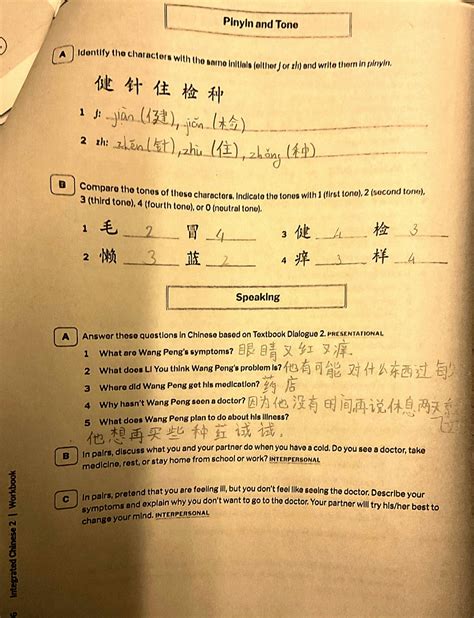 Pinyin and Tone
A Identify the characters with the same initials (either j or zh) and write them in pinyin.
健 针 住 检 种
1 j: jiàn (健), jiǎn (检)
2 zh: zhēn (针), zhù (住), zhǒng (种)
B Compare the tones of these characters. Indicate the tones with 1 (first tone), 2 (second tone),
3 (third tone), 4 (fourth tone), or 0 (neutral tone).
1 毛 2 冒 4 3 健 4 检 3
2 懒 3 蓝 2 4 痒 3 样 4
Speaking
A Answer these questions in Chinese based on Textbook Dialogue 2. PRESENTATIONAL
1 What are Wang Peng's symptoms? 眼睛又红又痒.
2 What does Li You think Wang Peng's problem is? 他有可能对什么东西过
3 Where did Wang Peng get his medication? 药店
4 Why hasn't Wang Peng seen a doctor? 因为他没有时间再说休息两天
5 What does Wang Peng plan to do about his illness?
他想再买些种药试试.
B In pairs, discuss what you and your partner do when you have a cold. Do you see a doctor, take
medicine, rest, or stay home from school or work? INTERPERSONAL
C In pairs, pretend that you are feeling ill, but you don't feel like seeing the doctor. Describe your
symptoms and explain why you don't want to go to the doctor. Your partner will try his/her best to
change your mind. INTERPERSONAL
6 Integrated Chinese 2 | Workbook